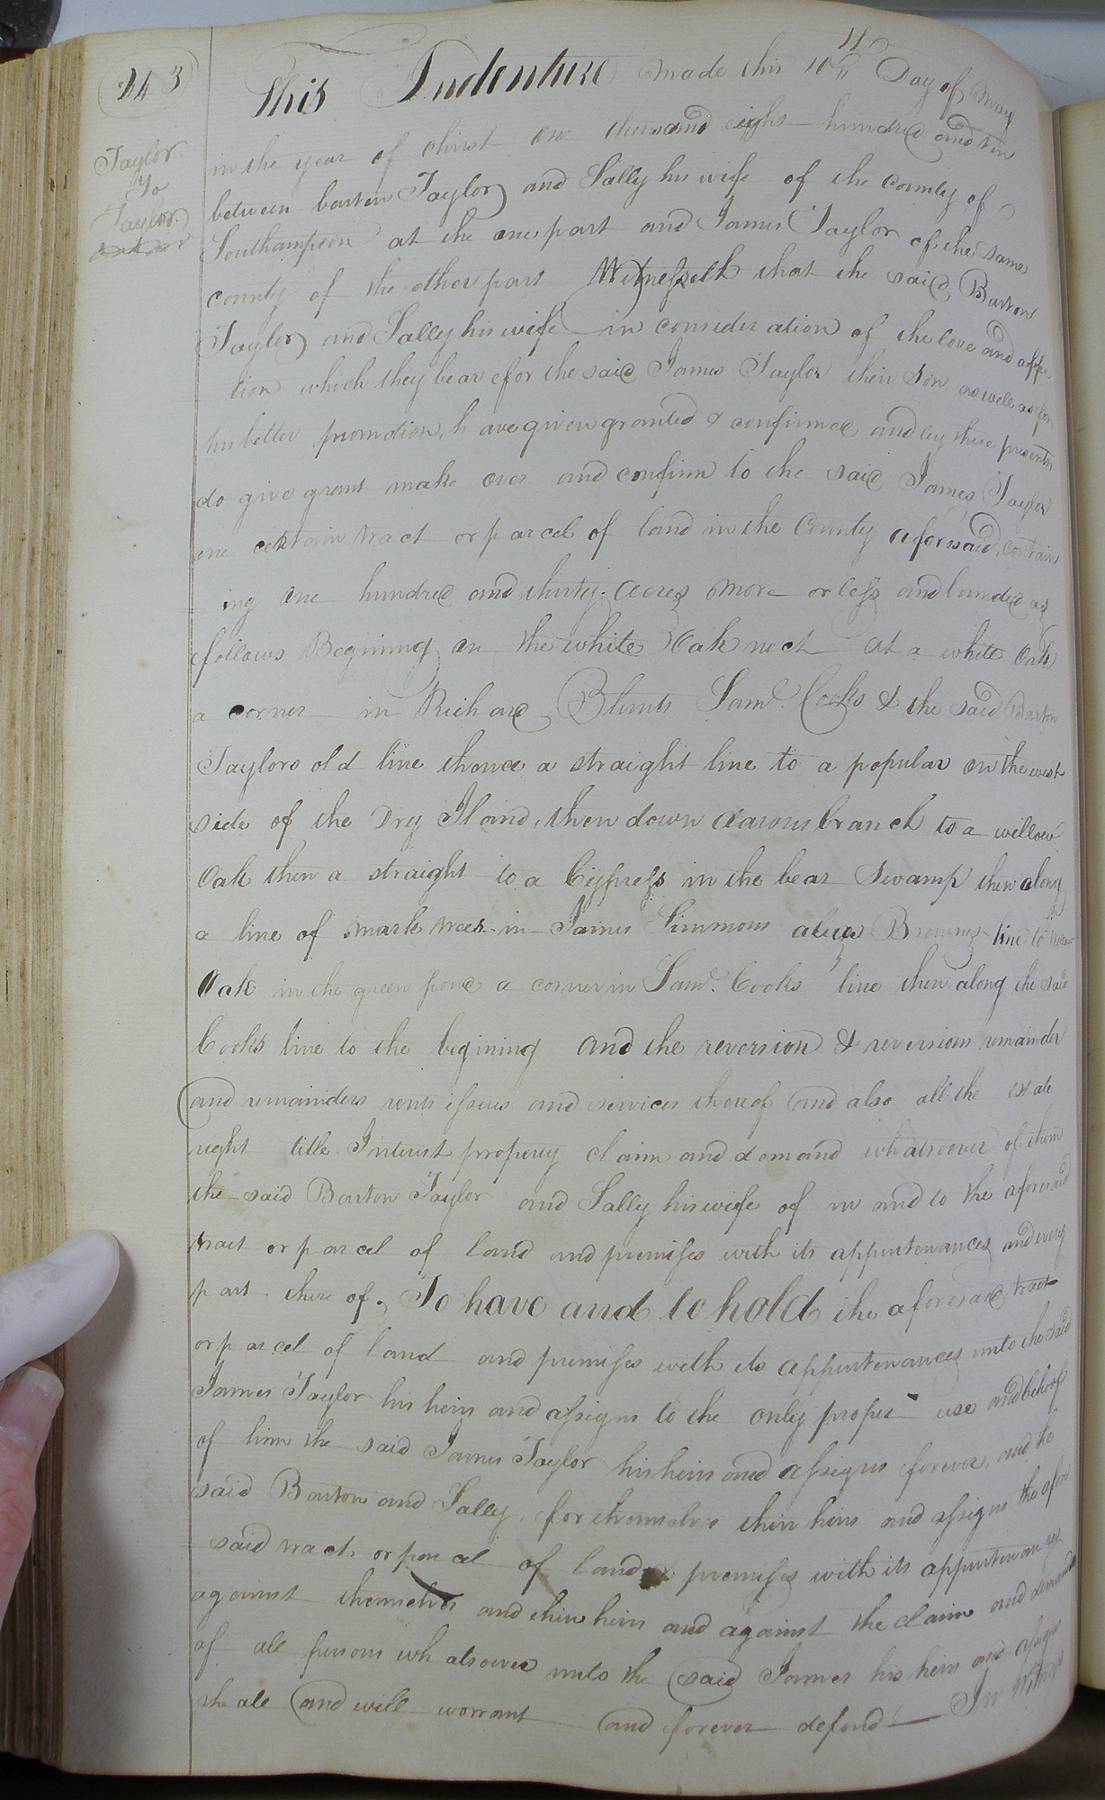 243
Taylor
To
Taylor
This Indenture made this 10th Day of May
in the year of christ one thousand eight hundred and ten
between barton Taylor and Sally his wife of the county of
Southampton at the one part and James Taylor of the same
county of the other part Witnesseth that the said Barton
Taylor and Sally his wife in consideration of the love and affe
tion which they bear for the said James Taylor their son as well as for
his better promotion, have given granted & confirmed and by these presents
do give grant make over and confirm to the said James Taylor
one certain tract or parcel of land in the County aforesaid, contain
ing one hundred and thirty acres more or less and bounded as
follows Begining in the white Oak at a white Oak
a corner in Richard Blunts Saml. Cooks & the said Barton
Taylors old line thence a straight line to a popular on the west
side of the Dry Iland, then down branch to a willow
Oak then a straight to a Cypress in the bear Swamp then along
a line of mark trees in James Simmons Browns line to
Oak in the green pond a corner in Saml. Cooks line then along the said
Cooks line to the begining and the reversion & reversions remainder
and remainders rents issues and services thereof and also all the estate
right title Interest property claim and demand whatsoever of them
the said Barton Taylor and Sally his wife of in and to the aforesaid
tract or parcel of land and premises with its appurtenances and every
part there of. To have and to hold the aforesaid tract
or parcel of land and premises with its appurtenances unto the said
James Taylor his heirs and assigns to the only proper use and behoof
of him the said James Taylor his heirs and assigns forever, and the
said Barton and Sally, for themselves their heirs and assigns the afore
said tract or parcel of land & premises with its appurtenances
against themselves and their heirs and against the claim and demands
of all persons whatsoever unto the said James his heirs and assigns
shall and will warrant and forever defend In Witness